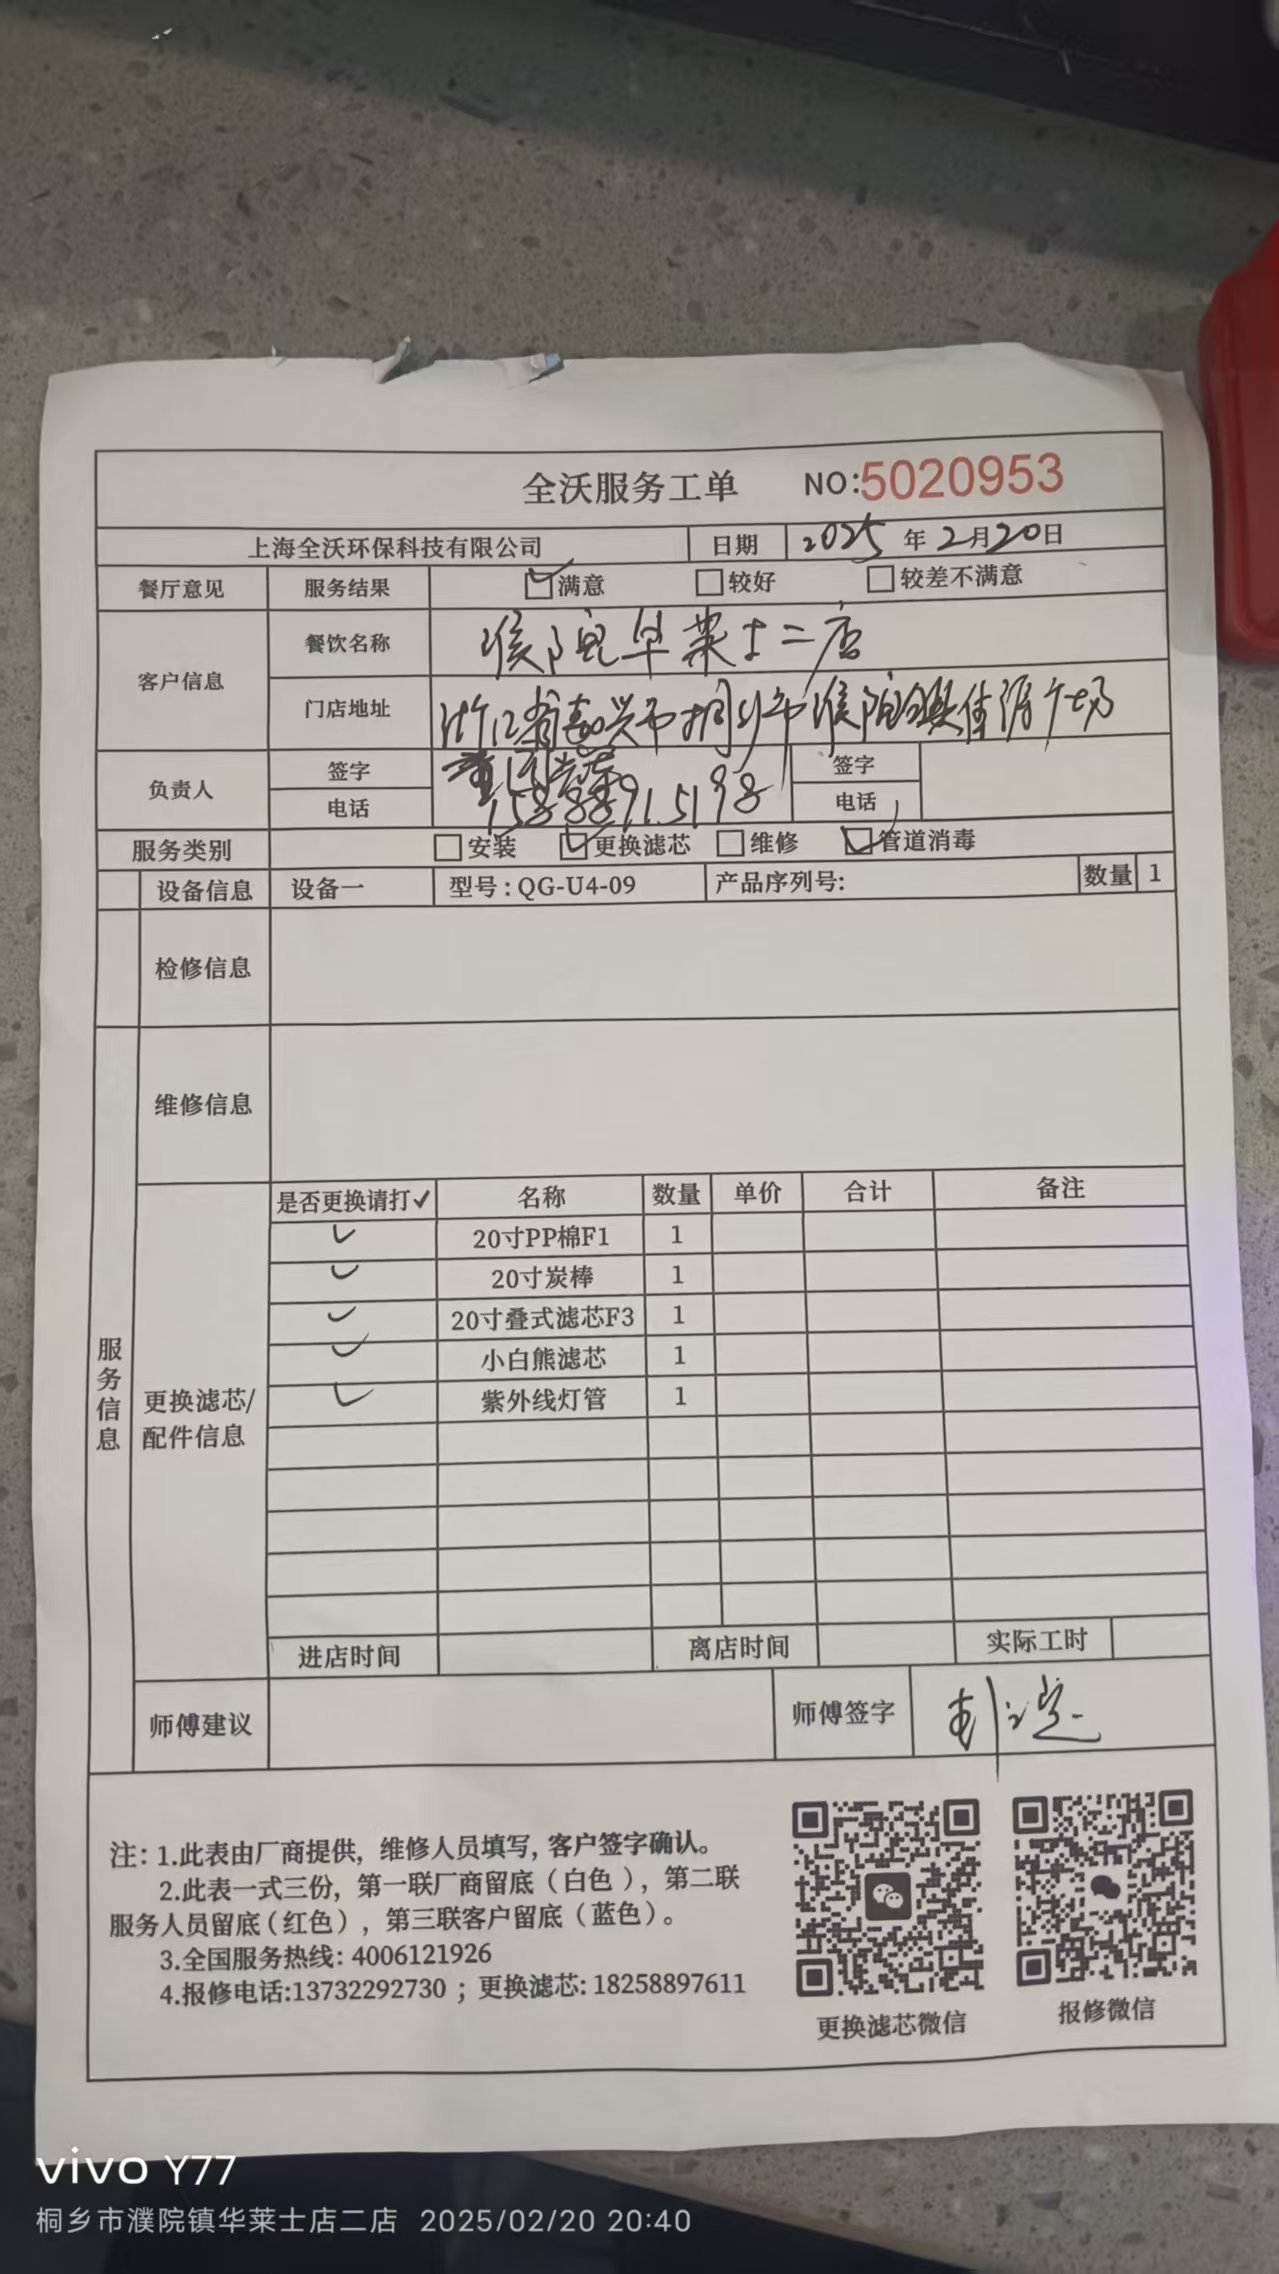 全沃服务工单 NO:5020953
上海全沃环保科技有限公司 日期 2025年2月20日
餐厅意见 服务结果 满意 较好 较差不满意
客户信息 餐饮名称 濮院华莱士二店
门店地址 浙江省嘉兴市桐乡市濮院镇佳源广场
负责人 签字 签字
电话 15888915198 电话
服务类别 安装 更换滤芯 维修 管道消毒
设备信息 设备一 型号:QG-U4-09 产品序列号: 数量 1
检修信息
维修信息
服务信息
更换滤芯/
配件信息
是否更换请打✓ 名称 数量 单价 合计 备注
✓ 20寸PP棉F1 1
✓ 20寸炭棒 1
✓ 20寸叠式滤芯F3 1
✓ 小白熊滤芯 1
✓ 紫外线灯管 1
进店时间 离店时间 实际工时
师傅建议 师傅签字
注:1.此表由厂商提供，维修人员填写,客户签字确认。
2.此表一式三份，第一联厂商留底（白色），第二联
服务人员留底(红色)，第三联客户留底（蓝色）。
3.全国服务热线:4006121926
4.报修电话:13732292730；更换滤芯:18258897611
更换滤芯微信 报修微信
vivo Y77
桐乡市濮院镇华莱士店二店 2025/02/20 20:40